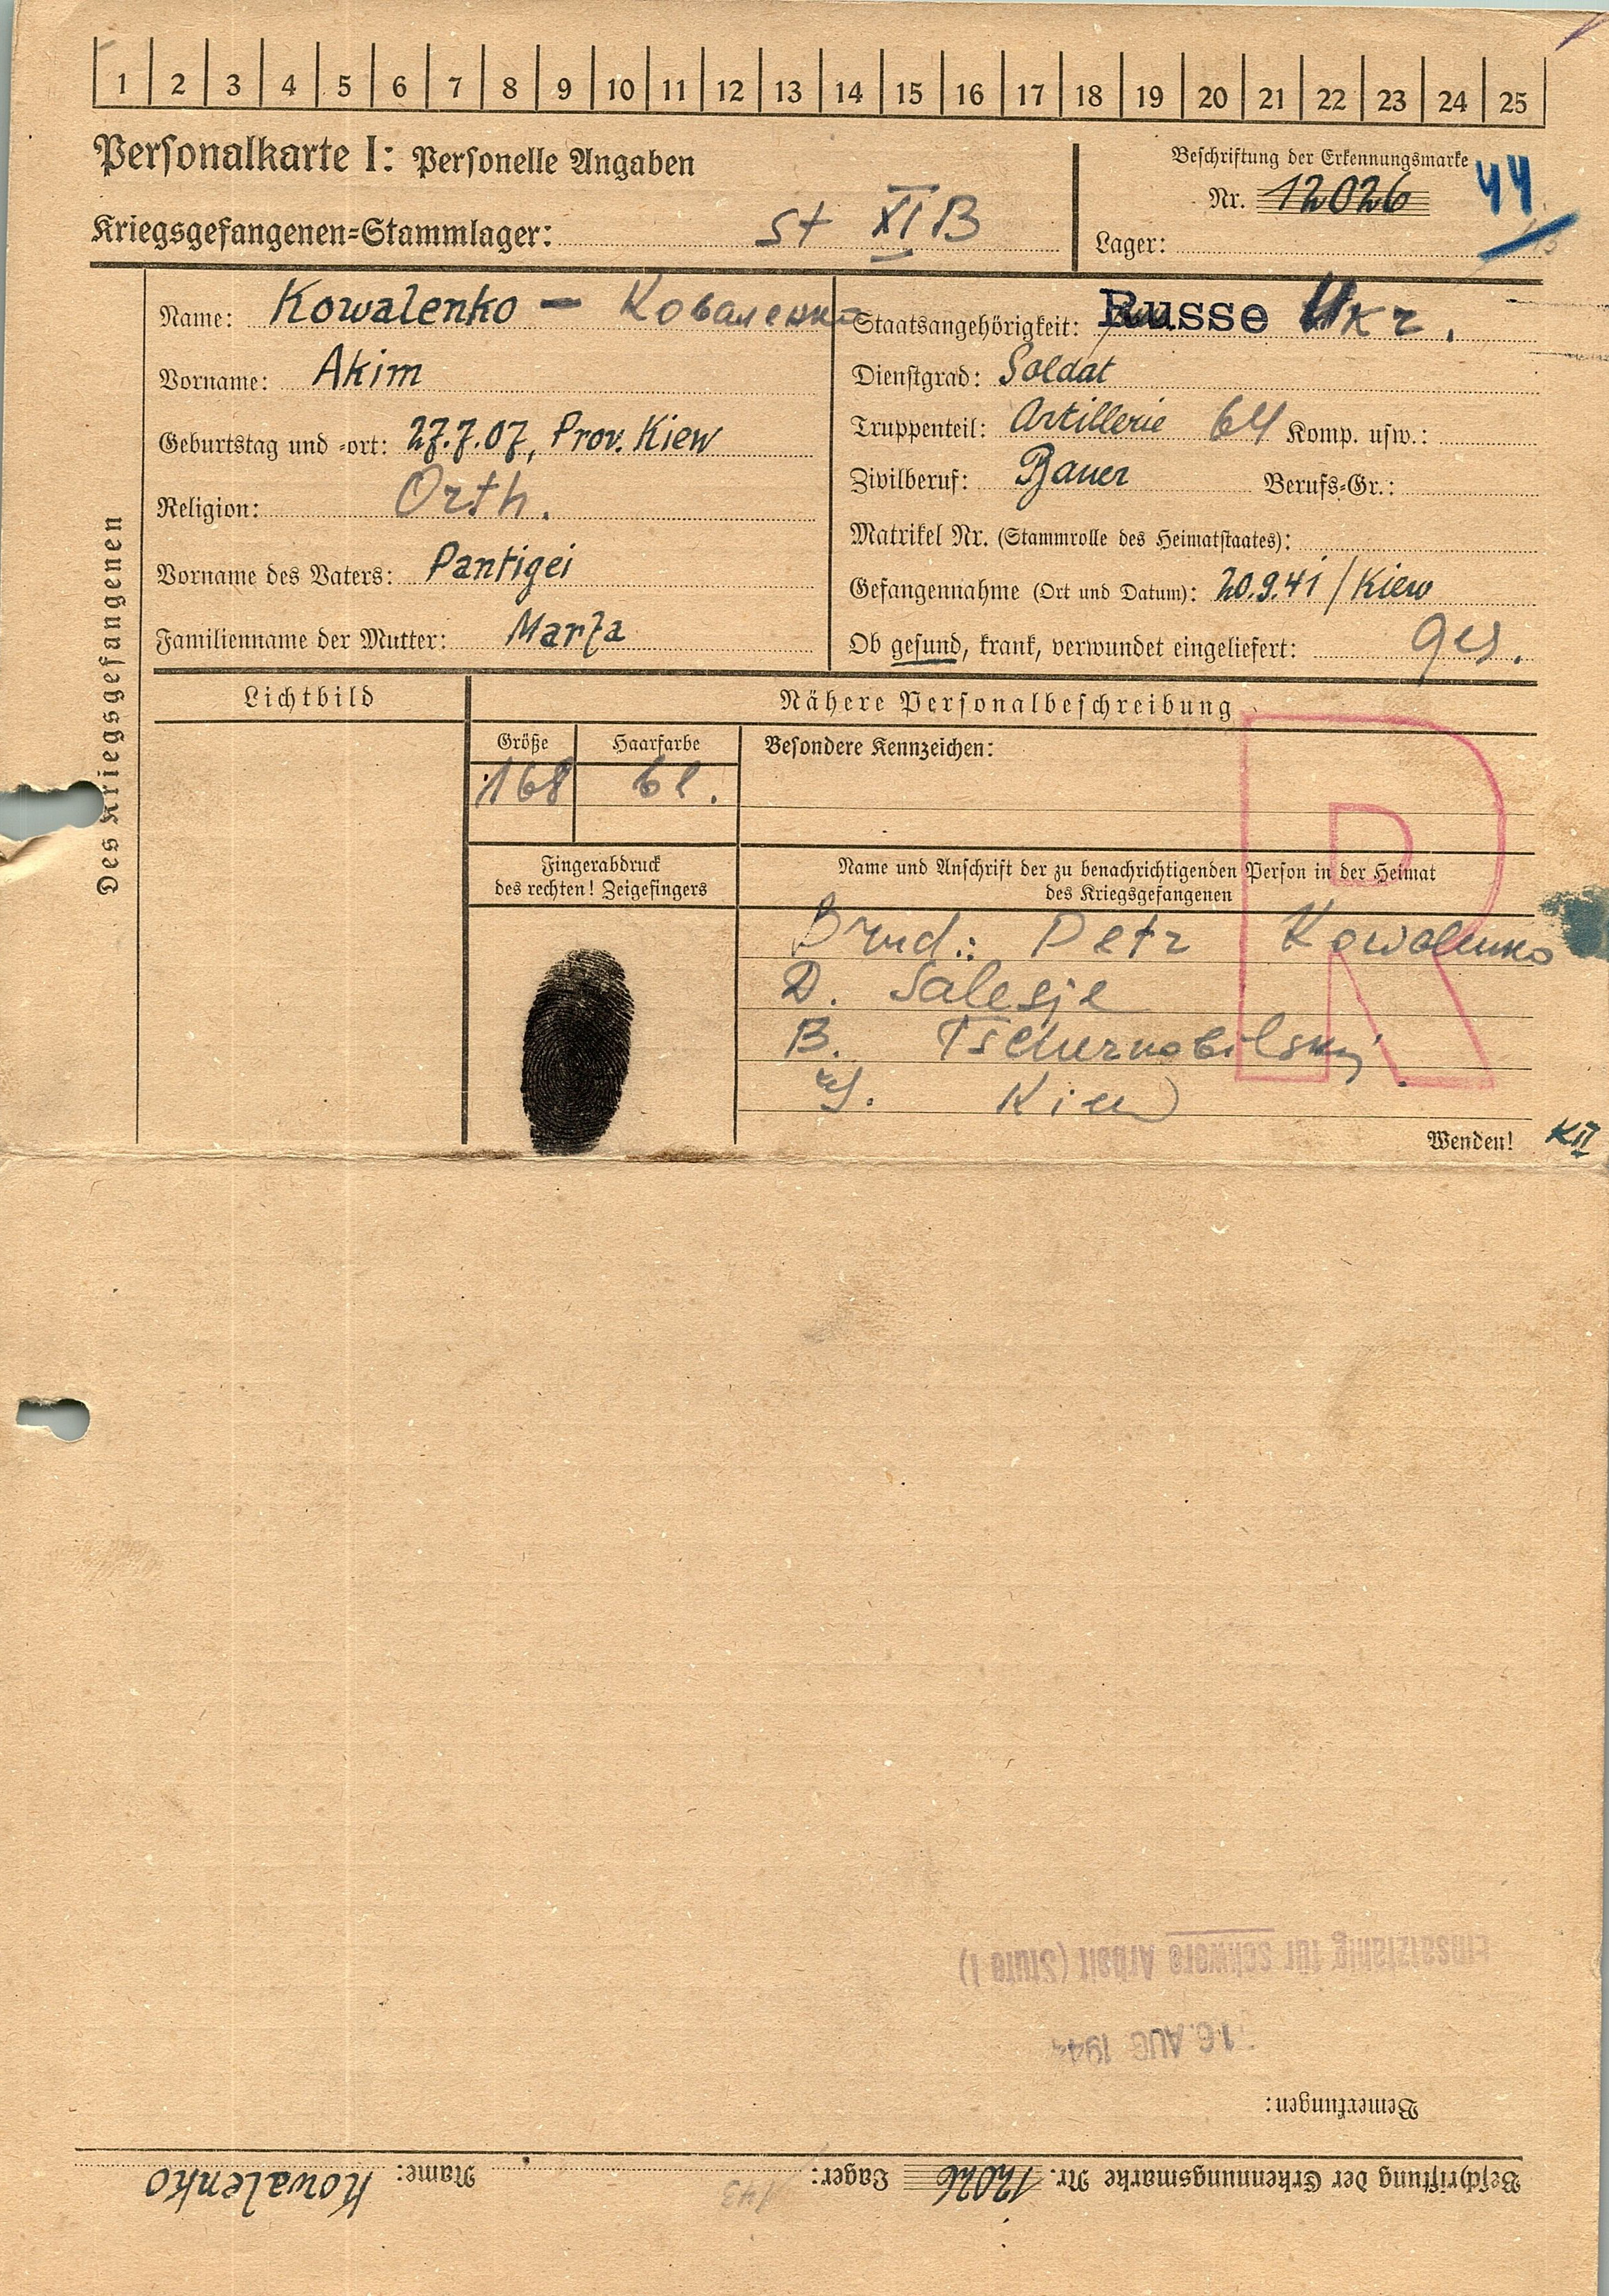 1 2 3 4 5 6 7 8 9 10 11 12 13 14 15 16 17 18 19 20 21 22 23 24 25
Personalkarte I: Personelle Angaben
Kriegsgefangenen-Stammlager: St XI B
Beschriftung der Erkennungsmarke
Nr. 12026 44
Lager:
Des Kriegsgefangenen
Name: Kowalenko – Коваленко
Vorname: Akim
Geburtstag und -ort: 27.7.07, Prov. Kiew
Religion: Orth.
Vorname des Vaters: Pantigei
Familienname der Mutter: Marfa
Staatsangehörigkeit: Russe Ukr.
Dienstgrad: Soldat
Truppenteil: Artillerie 64 Komp. usw.:
Zivilberuf: Bauer Berufs-Gr.:
Matrikel Nr. (Stammrolle des Heimatstaates):
Gefangennahme (Ort und Datum): 20.9.41 / Kiew
Ob gesund, krank, verwundet eingeliefert: ges.
Lichtbild
Nähere Personalbeschreibung
Größe Haarfarbe Besondere Kennzeichen:
168 bl.
Fingerabdruck
des rechten! Zeigefingers
Name und Anschrift der zu benachrichtigenden Person in der Heimat
des Kriegsgefangenen
R
Brud.: Petr Kowalenko
D. Salesje
B. Tschernobilskij
G. Kiew
Wenden! KII
Einsatzfähig für schwere Arbeit (Stufe I)
16. AUG 1944
Bemerkungen:
Beschriftung der Erkennungsmarke Nr. 12026 Lager: 143 Name: Kowalenko